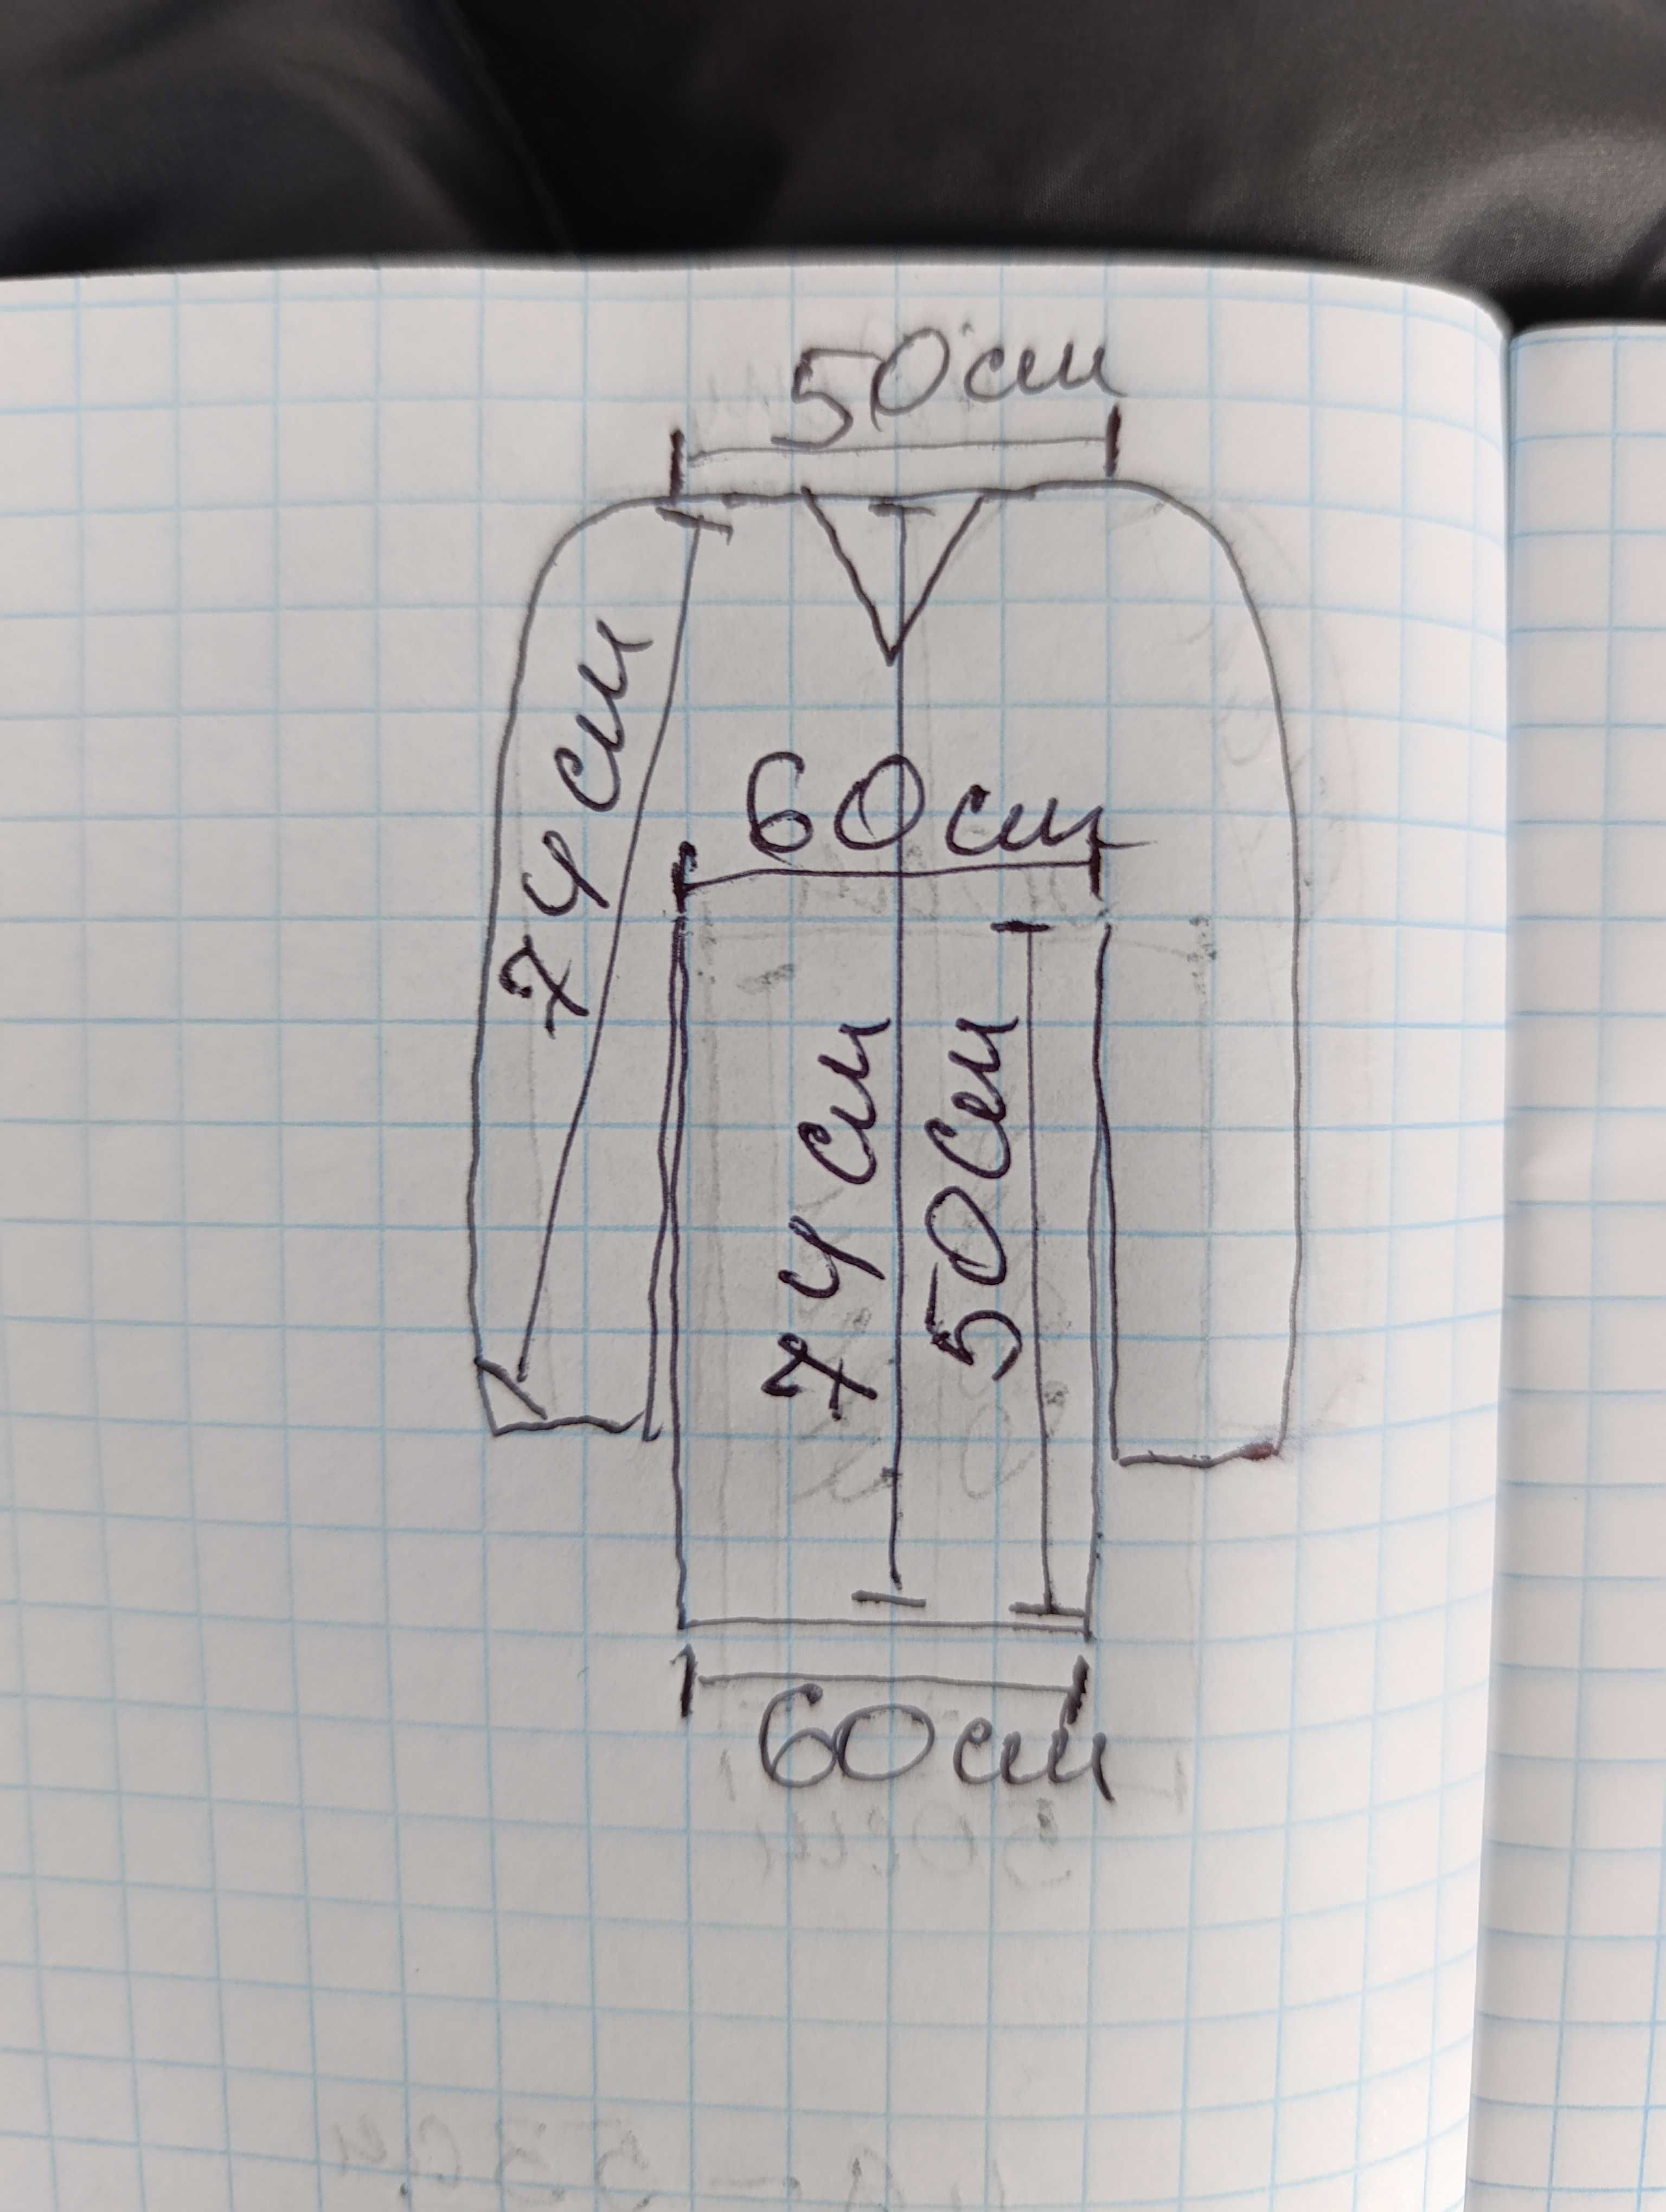 50см
74см
60см
74см
50см
60см